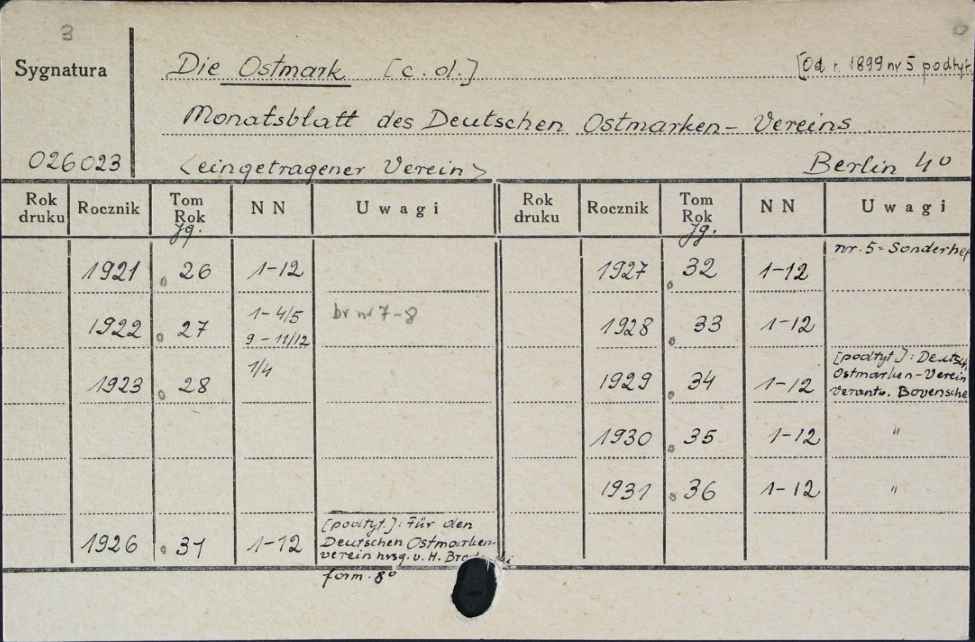 3
Sygnatura
Die Ostmark [c.d.] [Od r. 1899 nr 5 podtyt.
Monatsblatt des Deutschen Ostmarken- Vereins
026023 <eingetragener Verein> Berlin 4°
Rok druku Rocznik Tom Rok Jg. NN Uwagi Rok druku Rocznik Tom Rok Jg. NN Uwagi
1921 26 1-12 1927 32 1-12 nr. 5 = Sonderhef
1922 27 1-4/5 9-11/12 br nr 7-8 1928 33 1-12
1923 28 1/4 1929 34 1-12 [podtyt]: Deutsch Ostmarken-Verein verantw. Bovensche
1930 35 1-12 "
1931 36 1-12 "
1926 31 1-12 [podtyt.]: Für den Deutschen Ostmarken- verein hrsg. v. H.
form. 8°